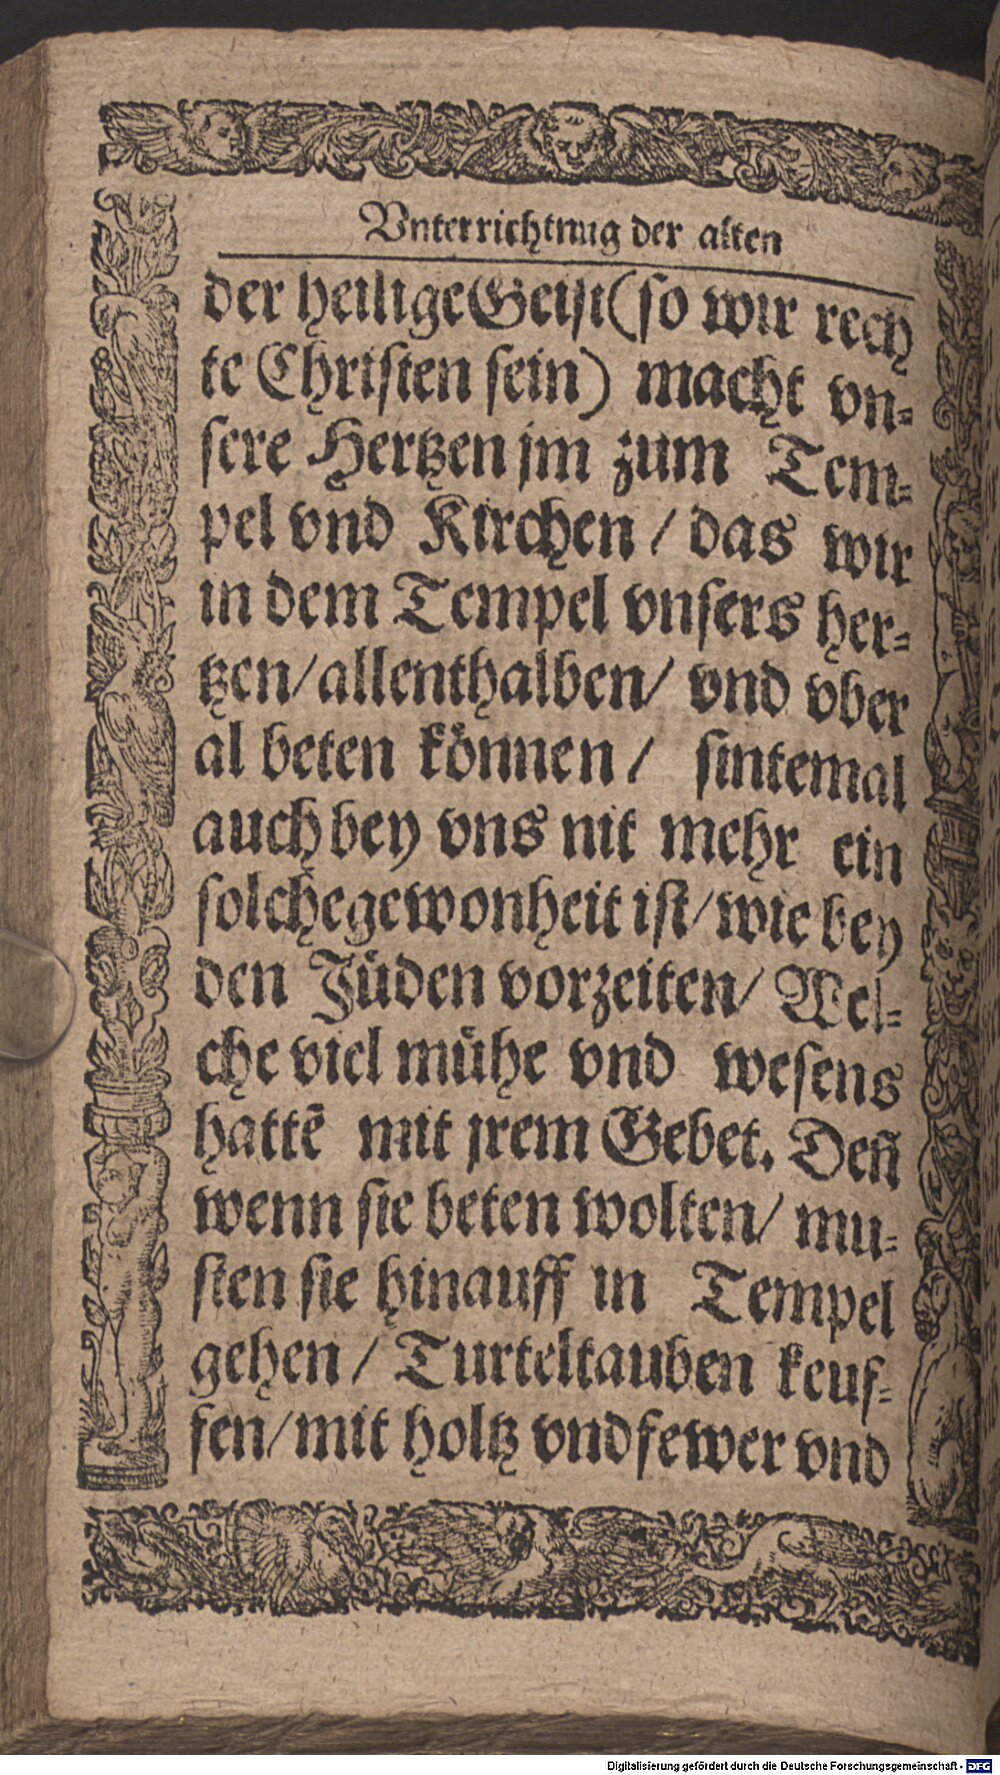 Vnterrichtnug der alten
der heilige Geist (so wir rech
te Christen sein) macht vn=
sere Hertzen jm zum Tem=
pel vnd Kirchen / das wir
in dem Tempel vnsers her=
tzen / allenthalben / vnd vber
al beten können / sintemal
auch bey vns nit mehr ein
solche gewonheit ist / wie bey
den Jüden vorzeiten / Wel=
che viel mühe vnd wesens
hattē mit jrem Gebet. Den̄
wenn sie beten wolten / mu=
sten sie hinauff in Tempel
gehen / Turteltauben keuf=
fen / mit holtz vnd fewer vnd
Digitalisierung gefördert durch die Deutsche Forschungsgemeinschaft - DFG